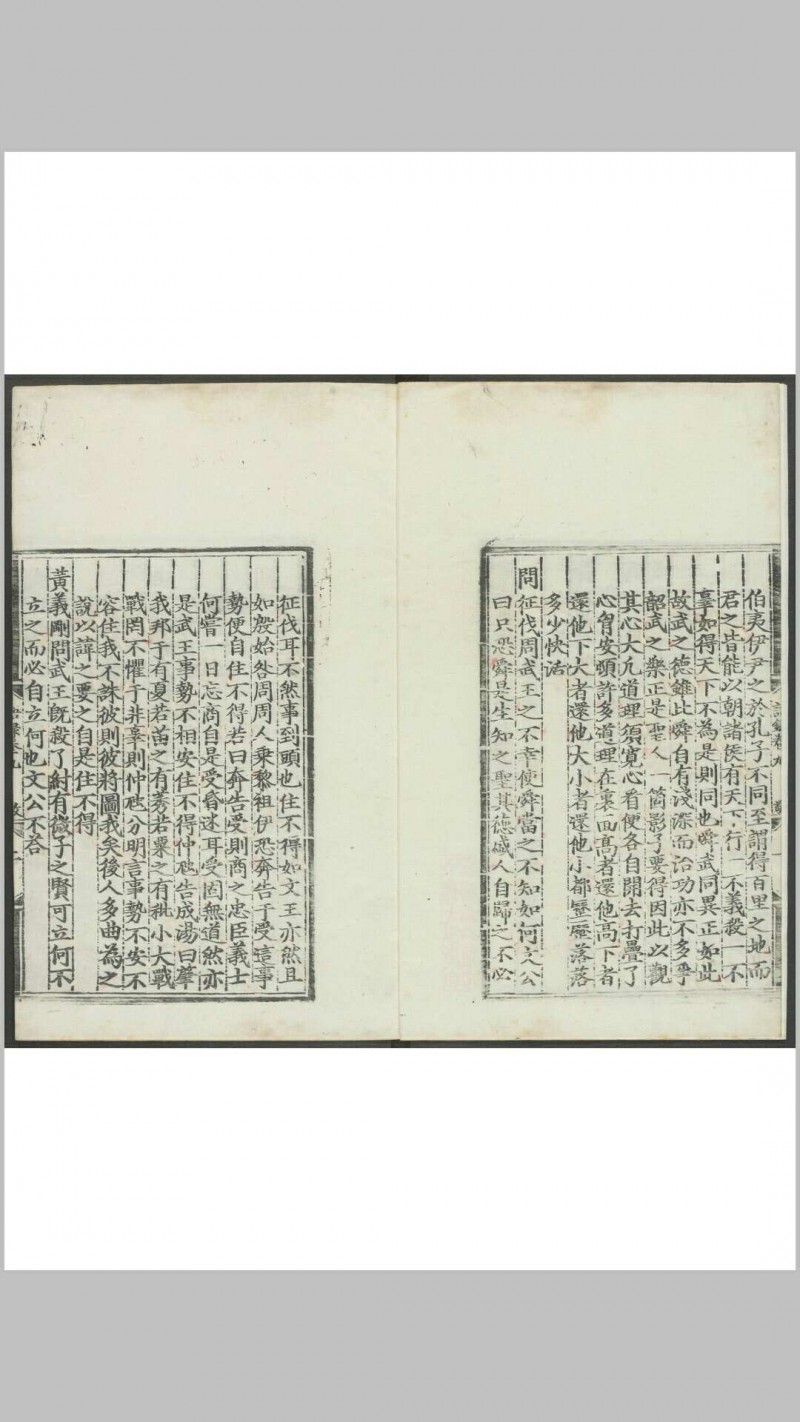 伯夷伊尹之於孔子不同至謂得百里之地而
君之皆能以朝諸侯有天下行一不義殺一不
辜如得天下不為是則同也舜武同異正如此
故武之德雖比舜自有淺深而治功亦不多爭
韶武之樂正是聖人一箇影子要得因此以觀
其心大凡道理須寛心看使各自開去打疊了
心胷安頓許多道理在裏面髙者還他髙下者
還他下大者還他大小者還他小都歷歷落落
多少快活
問征伐周武王之不幸使舜當之不知如何文公
曰只恐舜是生知之聖其德盛人自歸之不必
征伐耳不然事到頭也住不得如文王亦然且
如殷始咎周周人乗黎祖伊恐奔告于受這事
勢便自住不得若曰奔告受則商之忠臣義士
何嘗一日忘商自是受昏迷耳受固無道然亦
是武王事勢不相安住不得仲虺告成湯曰肇
我邦于有夏若苗之有莠若粟之有秕小大戰
戰罔不懼于非辜則仲虺分明言事勢不安不
容住我不誅彼則彼將圖我矣後人多曲為之
說以諱之要之自是住不得
黃義剛問武王旣殺了紂有微子之賢可立何不
立之而必自立何也文公不荅